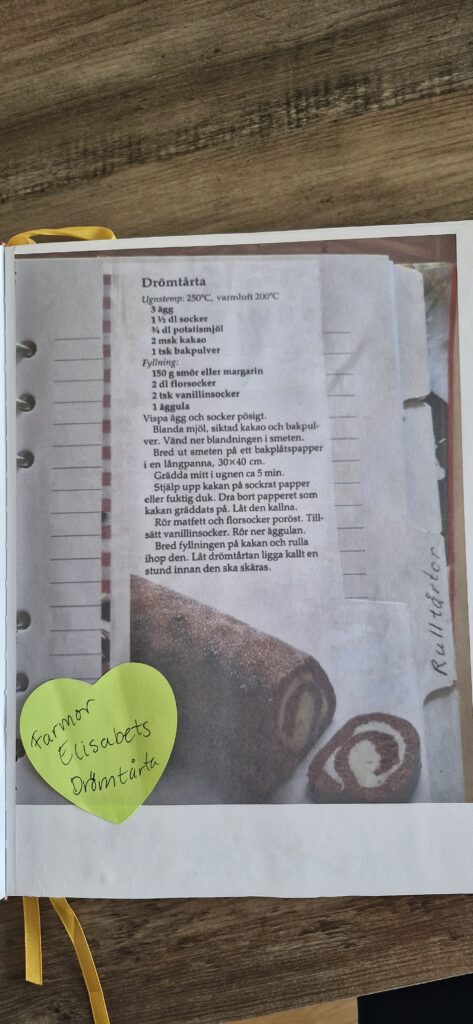 Drömtårta
Ugnstemp: 250°C, varmluft 200°C
3 ägg
1 ½ dl socker
¾ dl potatismjöl
2 msk kakao
1 tsk bakpulver
Fyllning:
150 g smör eller margarin
2 dl florsocker
2 tsk vanillinsocker
1 äggula
Vispa ägg och socker pösigt.
Blanda mjöl, siktad kakao och bakpul-
ver. Vänd ner blandningen i smeten.
Bred ut smeten på ett bakplåtspapper
i en långpanna, 30×40 cm.
Grädda mitt i ugnen ca 5 min.
Stjälp upp kakan på sockrat papper
eller fuktig duk. Dra bort papperet som
kakan gräddats på. Låt den kallna.
Rör matfett och florsocker poröst. Till-
sätt vanillinsocker. Rör ner äggulan.
Bred fyllningen på kakan och rulla
ihop den. Låt drömtårtan ligga kallt en
stund innan den ska skäras.
Rulltårtor
Farmor
Elisabets
Drömtårta